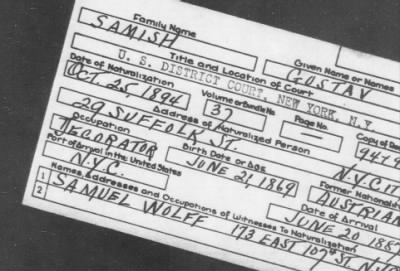 Family Name Given Name or Names
SAMISH GUSTAV
Title and Location of Court
U. S. DISTRICT COURT, NEW YORK, N.Y.
Date of Naturalization Volume or Bundle No. Page No. Copy of
OCT. 25, 1894 37 —
Address of Naturalized Person
29 SUFFOLK ST. N.Y.C.
Occupation Birth Date or Age Former Nationality
DECORATOR JUNE 21, 1869 AUSTRIAN
Port of Arrival in the United States Date of Arrival
N.Y.C. JUNE 20
Names, Addresses and Occupations of Witnesses To Naturalization
1 SAMUEL WOLFF 173 EAST 107th ST.
2